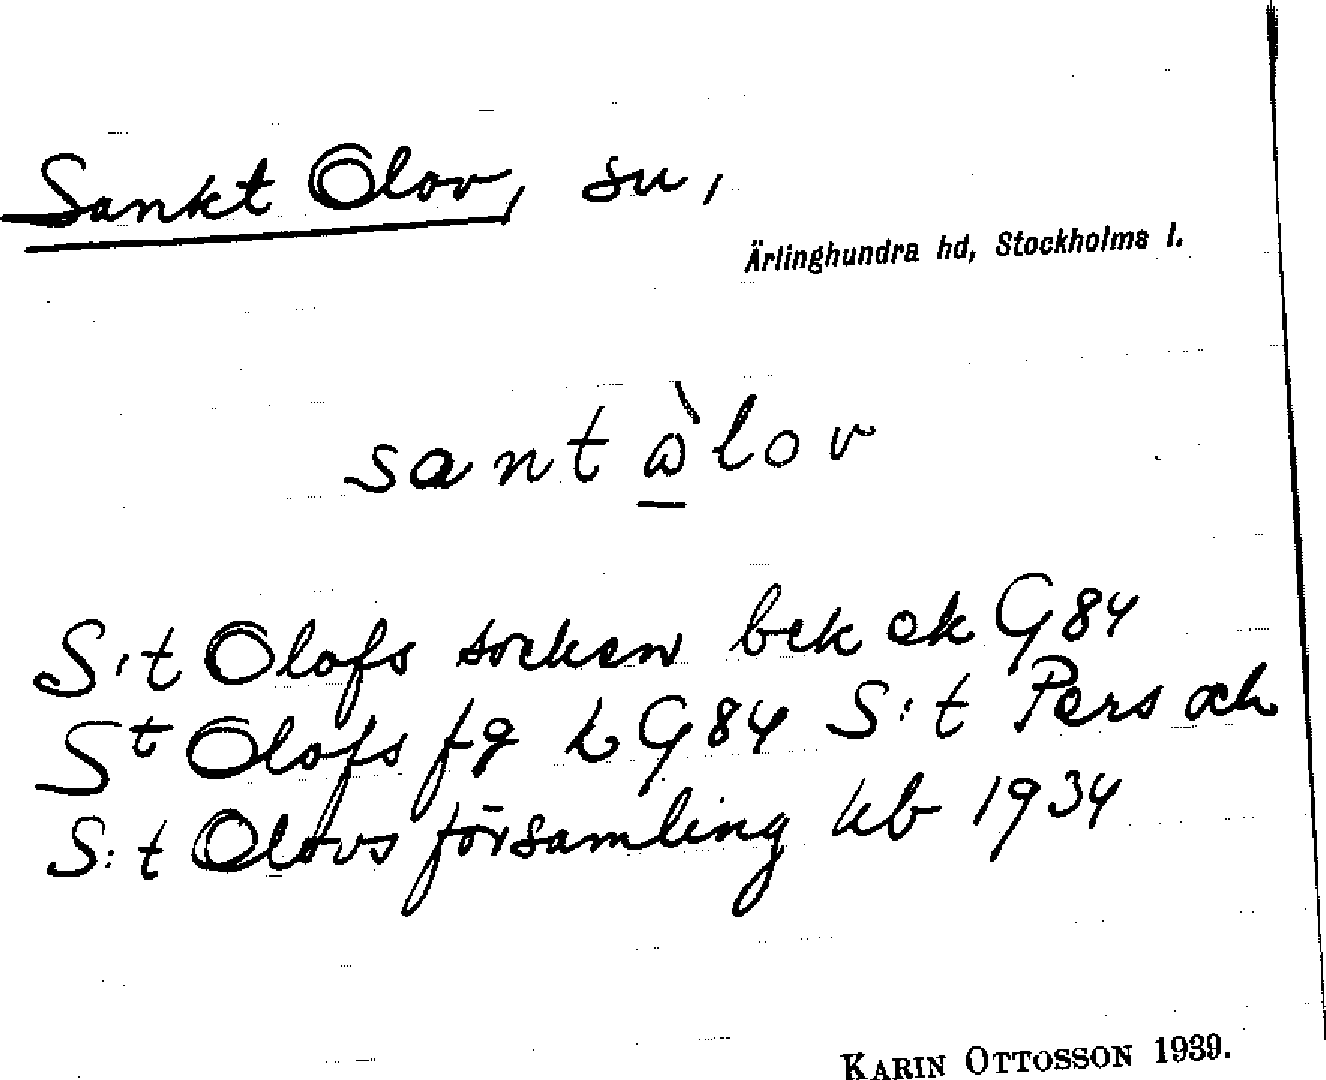 Sankt Olov, su,
Ärlinghundra hd, Stockholms l.
sant ὼlov
S:t Olofs socken bek ek G84
St Olofs fg L G84 S:t Pers och
S:t Olovs församling kb 1934
KARIN OTTOSSON 1939.